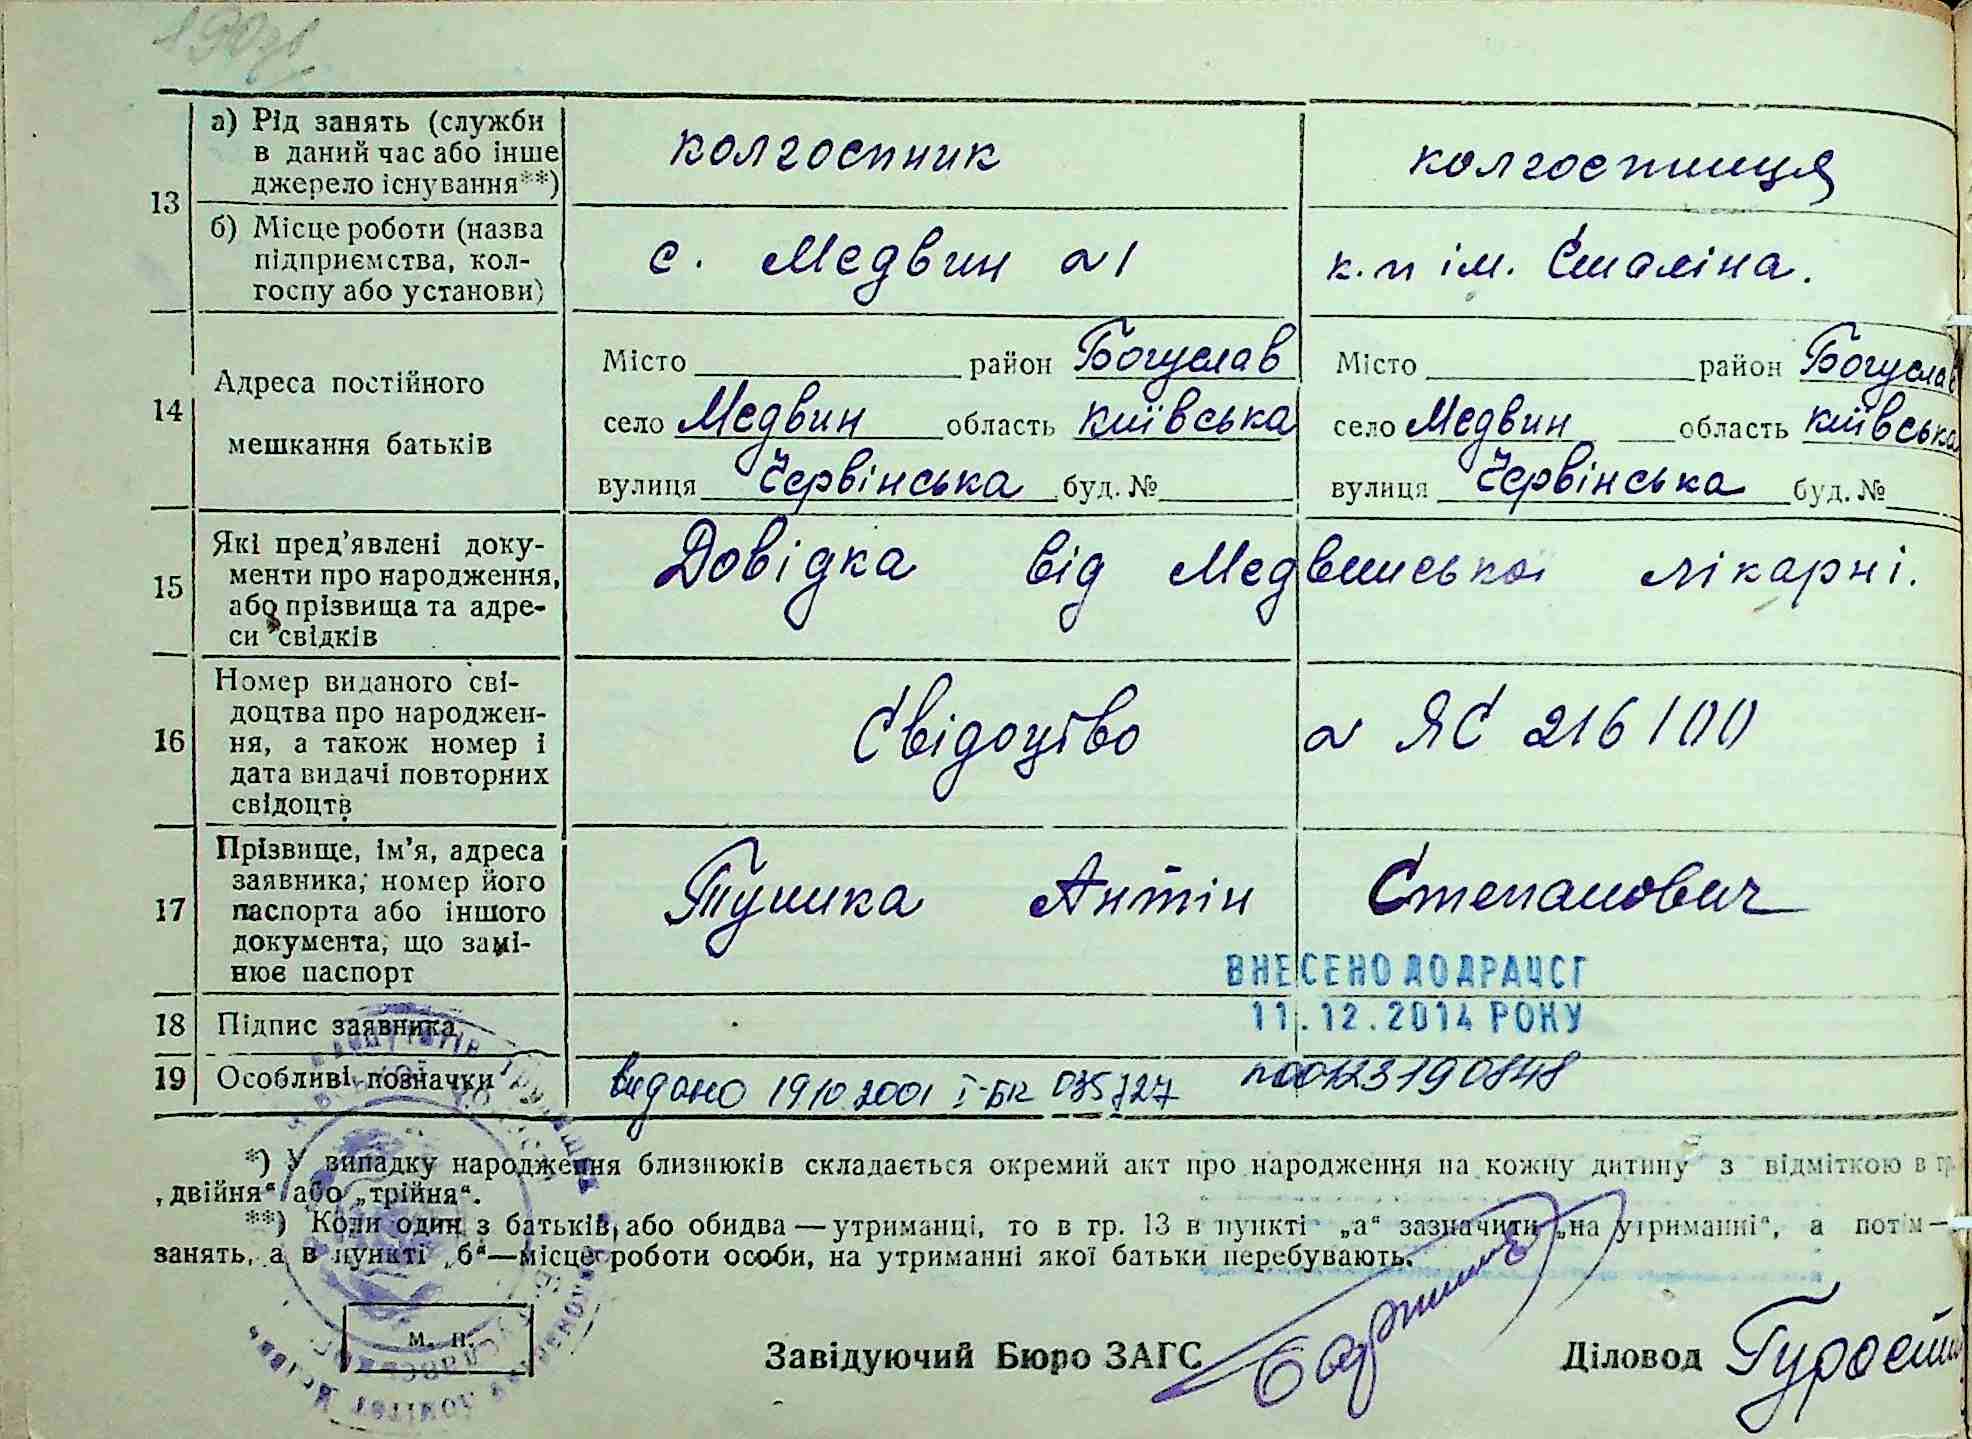 13
а) Рід занять (служби
в даний час або інше
джерело існування**)
колгоспник
колгоспниця
б) Місце роботи (назва
підприємства, кол-
госпу або установи)
с. Медвин №1
к.п ім. Сталіна.
14
Адреса постійного
мешкання батьків
Місто район Богуслав
село Медвин область Київська
вулиця Червінська буд. №
Місто район Богуслав
село Медвин область Київська
вулиця Червінська буд. №
15
Які пред’явлені доку-
менти про народження,
або прізвища та адре-
си свідків
Довідка від Медвинської лікарні.
16
Номер виданого сві-
доцтва про народжен-
ня, а також номер і
дата видачі повторних
свідоцтв
Свідоцтво № ЯС 216100
17
Прізвище, ім’я, адреса
заявника; номер його
паспорта або іншого
документа, що замі-
нює паспорт
Антін Степанович
ВНЕСЕНО ДО ДРАЦСГ
11.12.2014 РОКУ
18 Підпис заявника
19 Особливі позначки
видано 19.10.2001 І-БК 035727 n00123190848
*) У випадку народження близнюків складається окремий акт про народження на кожну дитину з відміткою в гр
„двійня“ або „трійня“.
**) Коли один з батьків, або обидва — утриманці, то в гр. 13 в пункті „а“ зазначити „на утриманні“, а потім —
занять, а в пункті „б“—місце роботи особи, на утриманні якої батьки перебувають.
м. п.
Завідуючий Бюро ЗАГС
Діловод